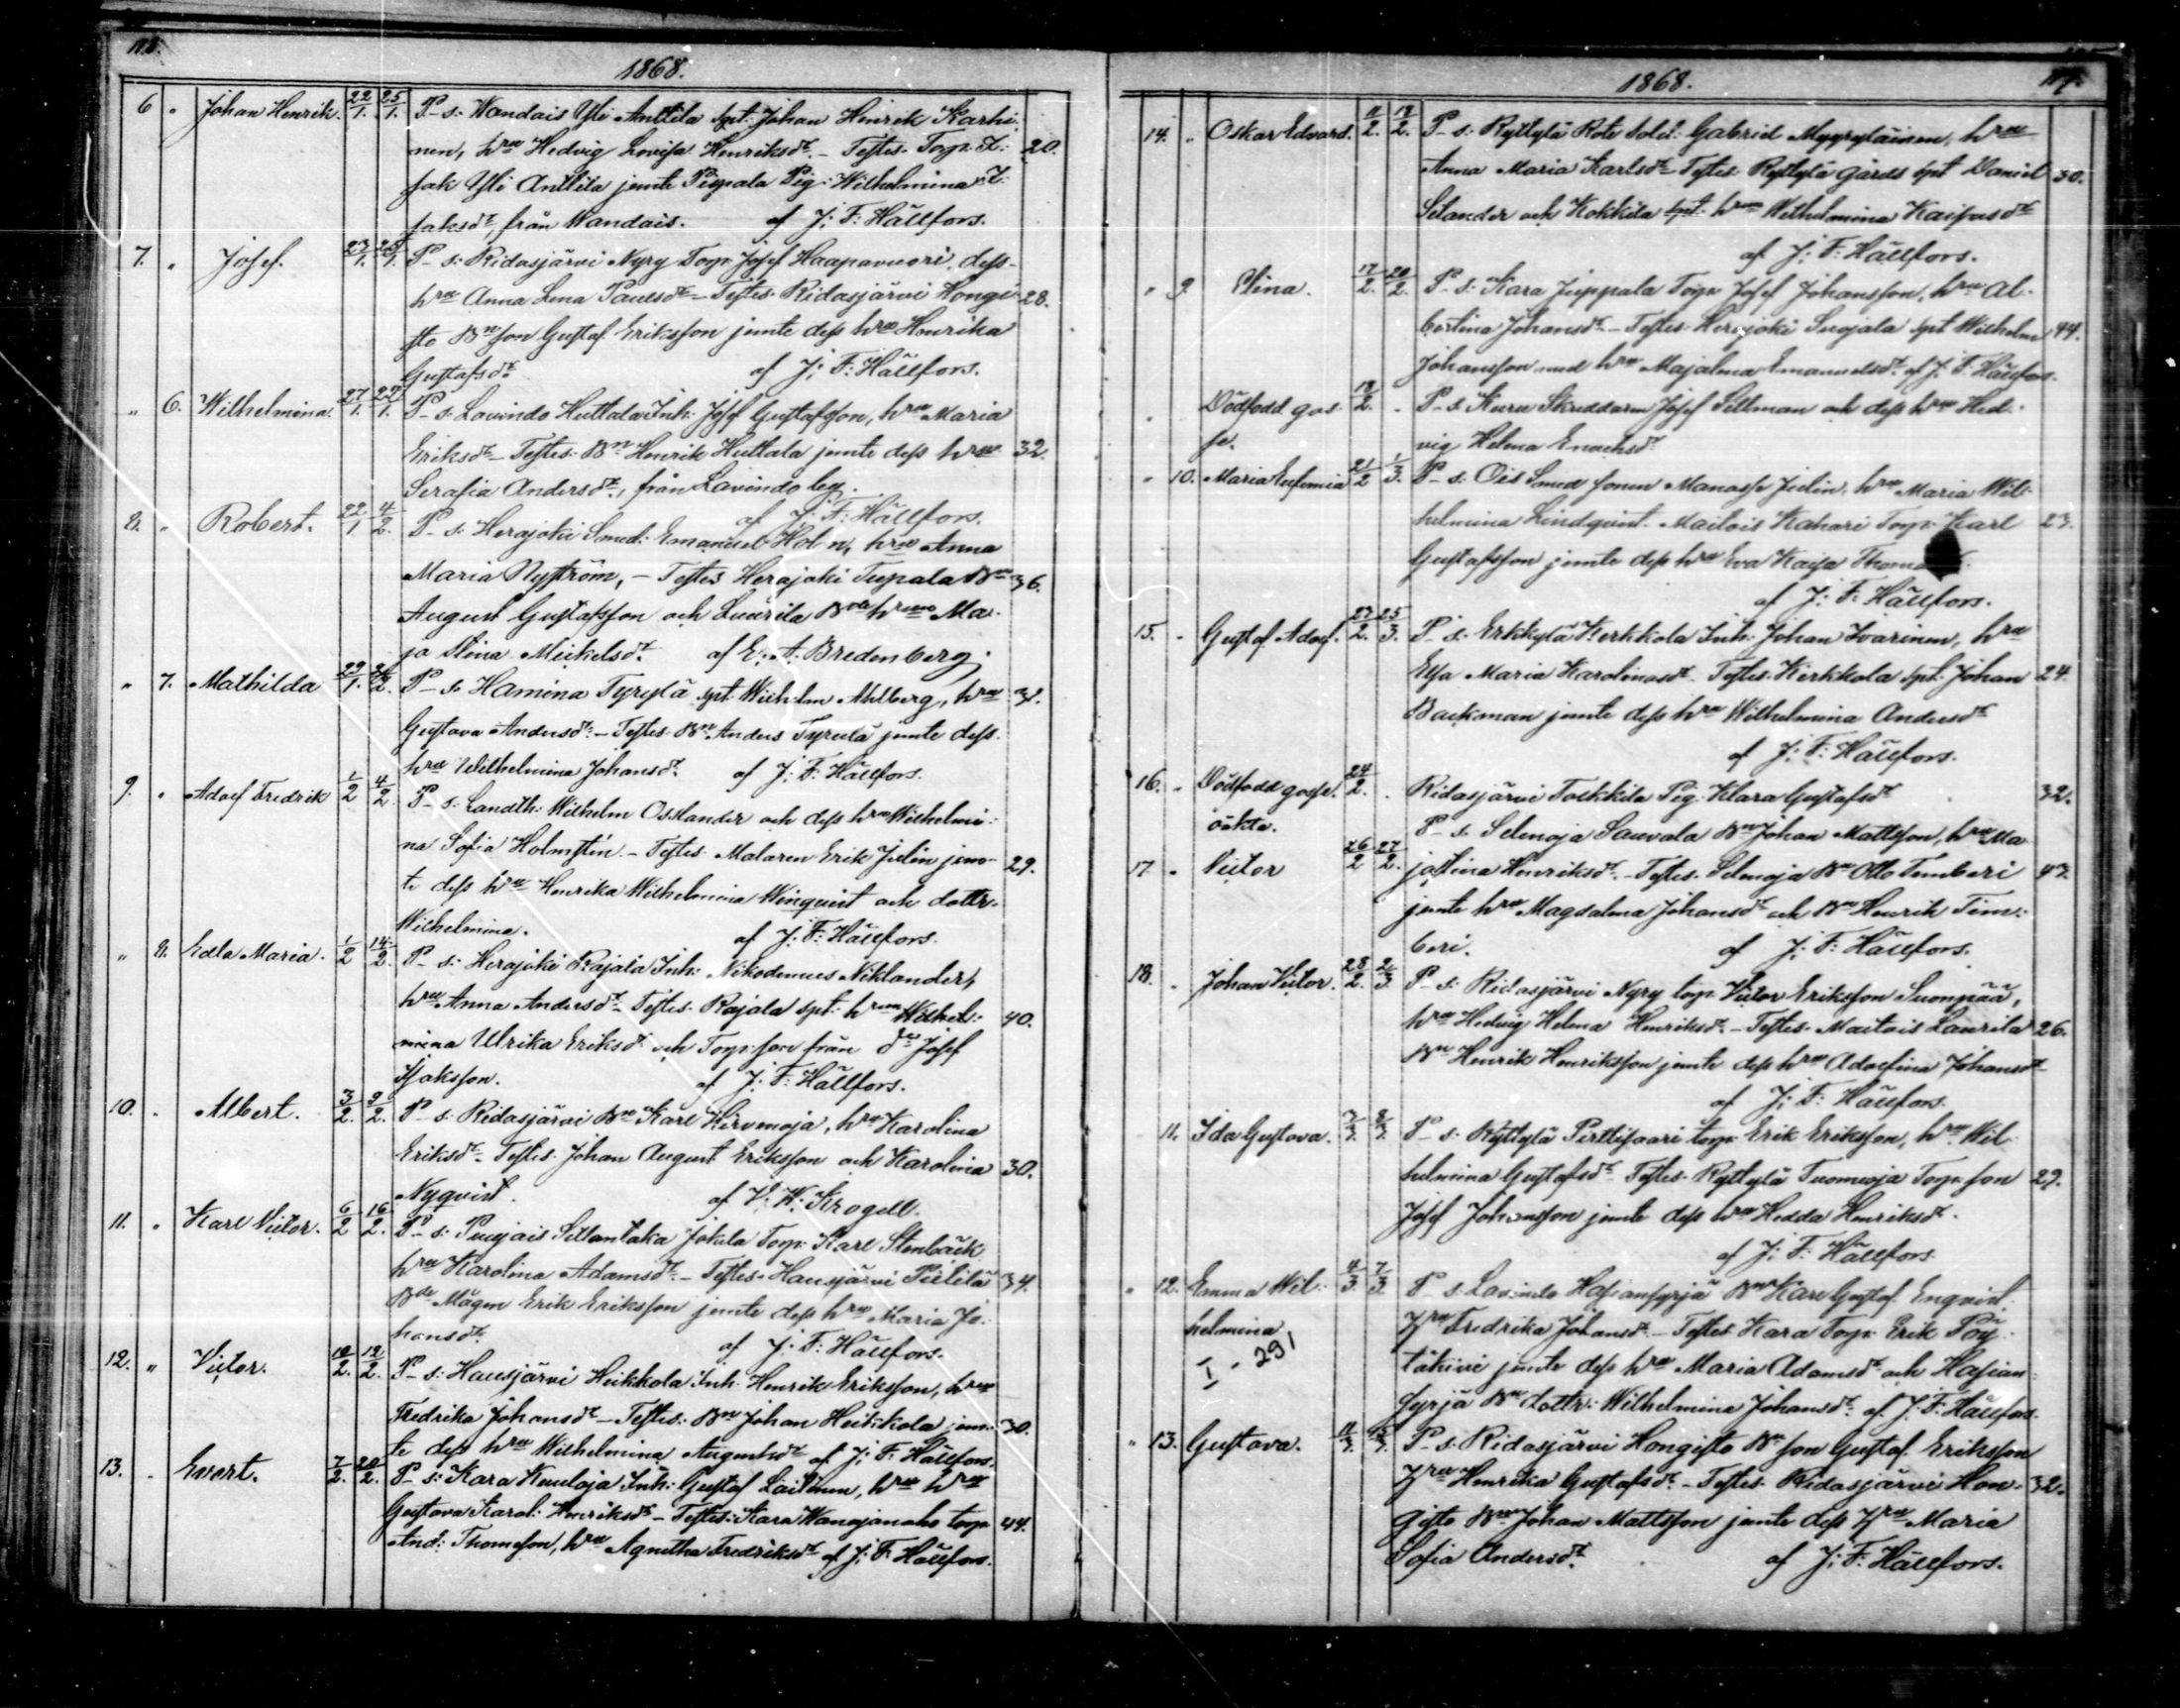 118.
1868.
6 " Johan Henrik. 22/1. 25/1. P. s. Wandais Yli Anttila spt. Johan Henrik Karhi-
nen, hru Hedvig Lovisa Henriksdr. – Testes Torp. I- 20.
sak Yli Anttila jemte Piepala Pig. Wilhelmina I-
saksdr, från Wandais. af J: F: Hällfors.
7. " Josef. 23/1. 25/1. P. s. Ridasjärvi Nyry Torp. Josef Haapavuori, dess
hru Anna Lena Paulsdr – Testes Ridasjärvi Hongi- 28.
sto Bn son Gustaf Eriksson jemte dess hru Henrika
Gustafsdr. af J: F: Hällfors.
" 6. Wilhelmina. 27/1. 27/1. P. s. Lavindo Huttala Inh: Josef Gustafsson, hru Maria
Eriksdr – Testes Bn Henrik Huttala jemte dess hru 32.
Serafia Andersdr, från Lavindo by.
af J: F: Hällfors.
8. " Robert. 22/1 4/2. P. s. Herajoki Smed: Emanuel Hol n, hru Anna
Maria Nyström, – Testes Herajoki Tupala Bn 36.
August Gustafsson och Laurila Bde hrun Ma-
ja Stina Mickelsdr. af E: A: Bredenberg.
" 7. Mathilda 29/1. P. s. Hamina Tyrylä spt. Wilhelm Ahlberg, hru
Gustava Andersdr. – Testes Bn Anders Tyrylä jemte dess
hru Wilhelmina Johansdr. af J: F: Hällfors.
9. " Adolf Fredrik 1/2 4/2. P. s. Landth: Wilhelm Osslander och dess hru Wilhelmi-
na Sofia Holmstén. – Testes Malaren Erik Julin jem- 29.
te dess hru Henrika Wilhelmina Winqvist och dottr.
Wilhelmina. af J: F: Hällfors.
" 8. Edla Maria. 1/2 14/2. P. s. Herajoki Rajala Inh: Nikodemus Niklander,
hru Anna Andersdr – Testes Rajala spt. hrun Wilhel- 40.
mina Ulrika Eriksdr och Torp. son från do Josef
Isaksson. af J: F: Hällfors.
10. " Albert. 3/2. 9/2. P. s. Ridasjärvi Bn Karl Hirvenoja, hru Karolina
Eriksdr. Testes Johan August Eriksson och Karolina 30.
Nyqvist. af V: W: Krogell.
11. " Karl Victor. 6/2 16/2. P. s. Puujais Sillantaka Jokela Torp. Karl Stenbäck
hru Karolina Adamsdr. – Testes Hausjärvi Pietilä 34.
Bde Mågen Erik Eriksson jemte dess hru Maria Jo-
hansdr. af J: F: Hällfors.
12. " Victor. 10/2. 12/2. P. s. Hausjärvi Heikkola Inh. Henrik Eriksson, hru
Fredrika Johansdr – Testes Bn Johan Heikkola jem- 30.
te dess hru Wilhelmina Augustsdr af J: F: Hällfors.
13. " Evert. 7/2. 20/2. P. s. Kara Kuuloja Inh: Gustaf Laitinen, hru hru
Gustava Karol: Henriksdr – Testes Kara Wanajanaho torp 44.
And: Thomsson, hru Agnetha Fredriksdr af J: F: Hällfors.
1868.
14. " Oskar Edvard. 11/2. 12/2. P. s. Ryttylä Rote Sold: Gabriel Myyryläinen, hru
Anna Maria Karlsdr – Testes Ryttylä gårds spt Daniel 30.
Selander och Kokkila spt. hrun Wilhelmina Kaifasdr
af J: F: Hällfors.
" 9. Elina. 17/2. 20/2. P. s. Kara Juppala Torp Josef Johansson, hru Al-
bertina Johansdr. – Testes Herajoki Suojala spt Wilhelm 44.
Johansson med hru Majalena Emanuelsdr. af J: F: Hällfors.
" Dödfödd gos- 18/2. P. s. Kuru Skräddaren Josef Sellman och dess hru Hed-
se. vig Helena Enochsdr
" 10. Maria Eufemia 21/2 1/3. P. s. Ois Smed sonen Manasse Julin, hru Maria Wil-
helmina Lindqvist. Maitois Kahari Torp. Karl 23.
Gustafsson jemte dess hru Eva Kaisa Thoma
af J: F: Hällfors.
15. " Gustaf Adolf. 23/2. 25/3. P. s. Erkkylä Kerkkola Inh: Johan Ivarinen, hru
Elsa Maria Karolinasdr – Testes Kerkkola spt. Johan 24.
Backman jemte dess hru Wilhelmina Andersdr
af J: F: Hällfors.
16. " Dödfödd gosse. 24/2. Ridasjärvi Toikkila Pig. Klara Gustafsdr 32.
oäkta.
P. s. Selenoja Sauvala Bn Johan Mattsson, hru Ma-
17. " Victor 26/2 27/2. jastina Henriksdr. – Testes Selenoja Bn Otto Temberi 43.
jemte hru Magdalena Johansdr och Bn Henrik Tim-
beri. af J: F: Hällfors.
18. " Johan Victor. 28/2. 2/3. P. s. Ridasjärvi Nyry torp. Victor Eriksson Suonpää,
hru Hedvig Helena Henriksdr. – Testes Maitois Laurila 26.
Bn Henrik Henriksson jemte dess hru Adolfina Johansdr
af J: F: Hällfors.
11. Ida Gustava. 7/3. 8/3. P. s. Ryttylä Perttisaari torp. Erik Eriksson, hru Wil-
helmina Gustafsdr Testes Ryttylä Tuomeoja Torp son 29.
Josef Johansson jemte dess hru Hedda Henriksdr.
af J: F: Hällfors
" 12. Emma Wil- 4/3. 7/3. P. s. Lavindo Hasiansyrjä Bn Karl Gustaf Enqvist,
helmina Hru Fredrika Johansdr. – Testes Kara Torp. Erik Pöy-
I - 291 täkivi jemte dess hru Maria Adamsdr och Hasian-
syrjä Bn dottr: Wilhelmina Johansdr. af J: F: Hällfors.
" 13. Gustava. 11/3. 15/3. P. s. Ridasjärvi Hongisto Bn son Gustaf Eriksson
Hru Henrika Gustafsdr. – Testes Ridasjärvi Hon- 32.
gisto Bn Johan Mattsson jemte dess Hru Maria
Sofia Andersdr. af J: F: Hällfors.